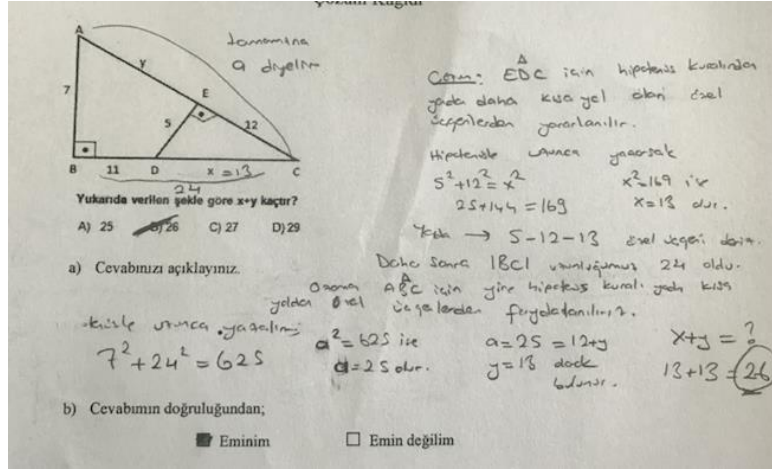 Çözüm Kağıdı
A
y
7
E
5
12
B
11
D
x = 13
C
24
tamamına
a diyelim
Yukarıda verilen şekle göre x+y kaçtır?
A) 25 B) 26 C) 27 D) 29
a) Cevabınızı açıklayınız.
Çözüm: EDC için hipotenüs kuralından
yada daha kısa yol olan özel
üçgenlerden yararlanılır.
Hipotenüsle uzunca yazarsak
5²+12²=x² x²=169 ise
25+144=169 x=13 olur.
Yada → 5-12-13 özel üçgeni deriz.
Daha sonra |BC| uzunluğumuz 24 oldu.
Ozaman ABC için yine hipotenüs kuralı yada kısa
yoldan özel üçgenlerden faydalanılırız.
uzunca yazalım;
7²+24²=625
a²=625 ise a=25 =12+y x+y=?
a=25 olur. y=13 13+13=26
bulunur.
b) Cevabımın doğruluğundan;
Eminim Emin değilim